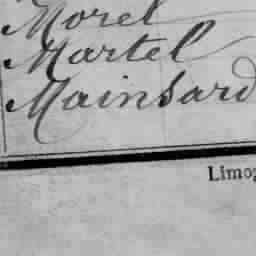 Morel
Martel
Mainsard
Limog